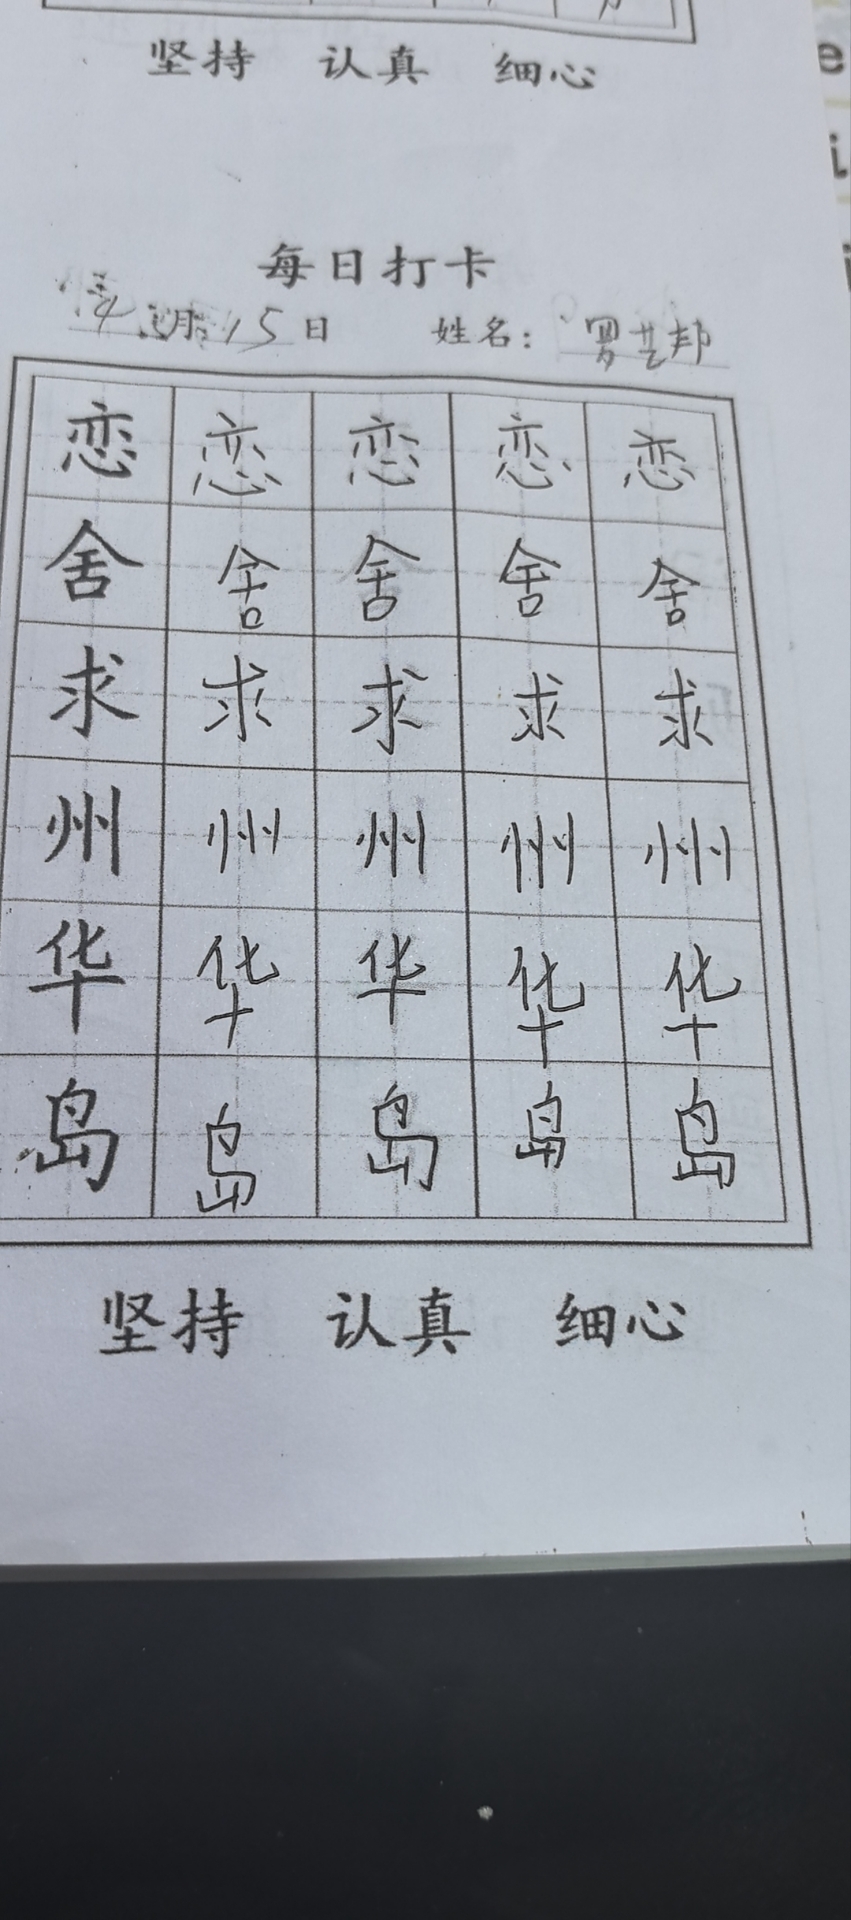 坚持 认真 细心
每日打卡
月15日 姓名：罗艺邦
恋 恋 恋 恋 恋
舍 舍 舍 舍 舍
求 求 求 求 求
州 州 州 州 州
华 华 华 华 华
岛 岛 岛 岛 岛
坚持 认真 细心